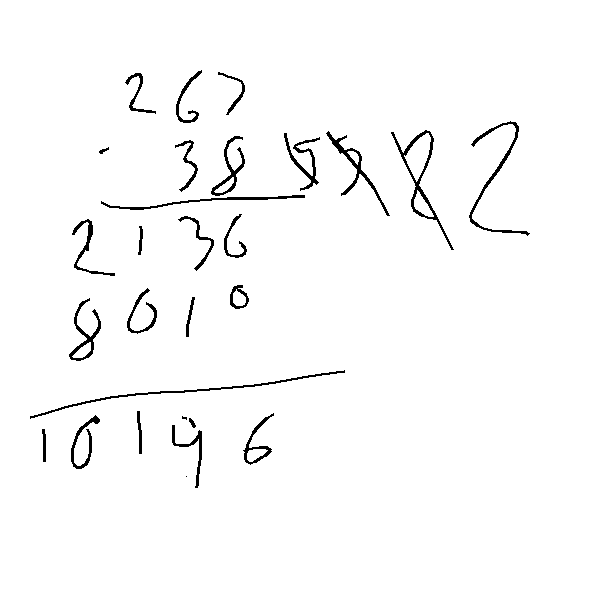 267
· 38 2
2136
8010
10146